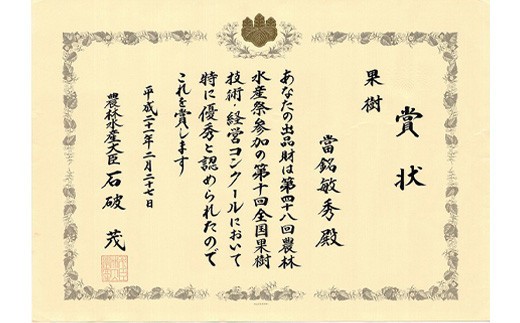 賞状
果樹
當銘敏秀殿
あなたの出品財は第四十八回農林
水産祭参加の第十回全国果樹
技術・経営コンクールにおいて
特に優秀と認められたので
これを賞します
平成二十一年二月二十七日
農林水産大臣 石破 茂